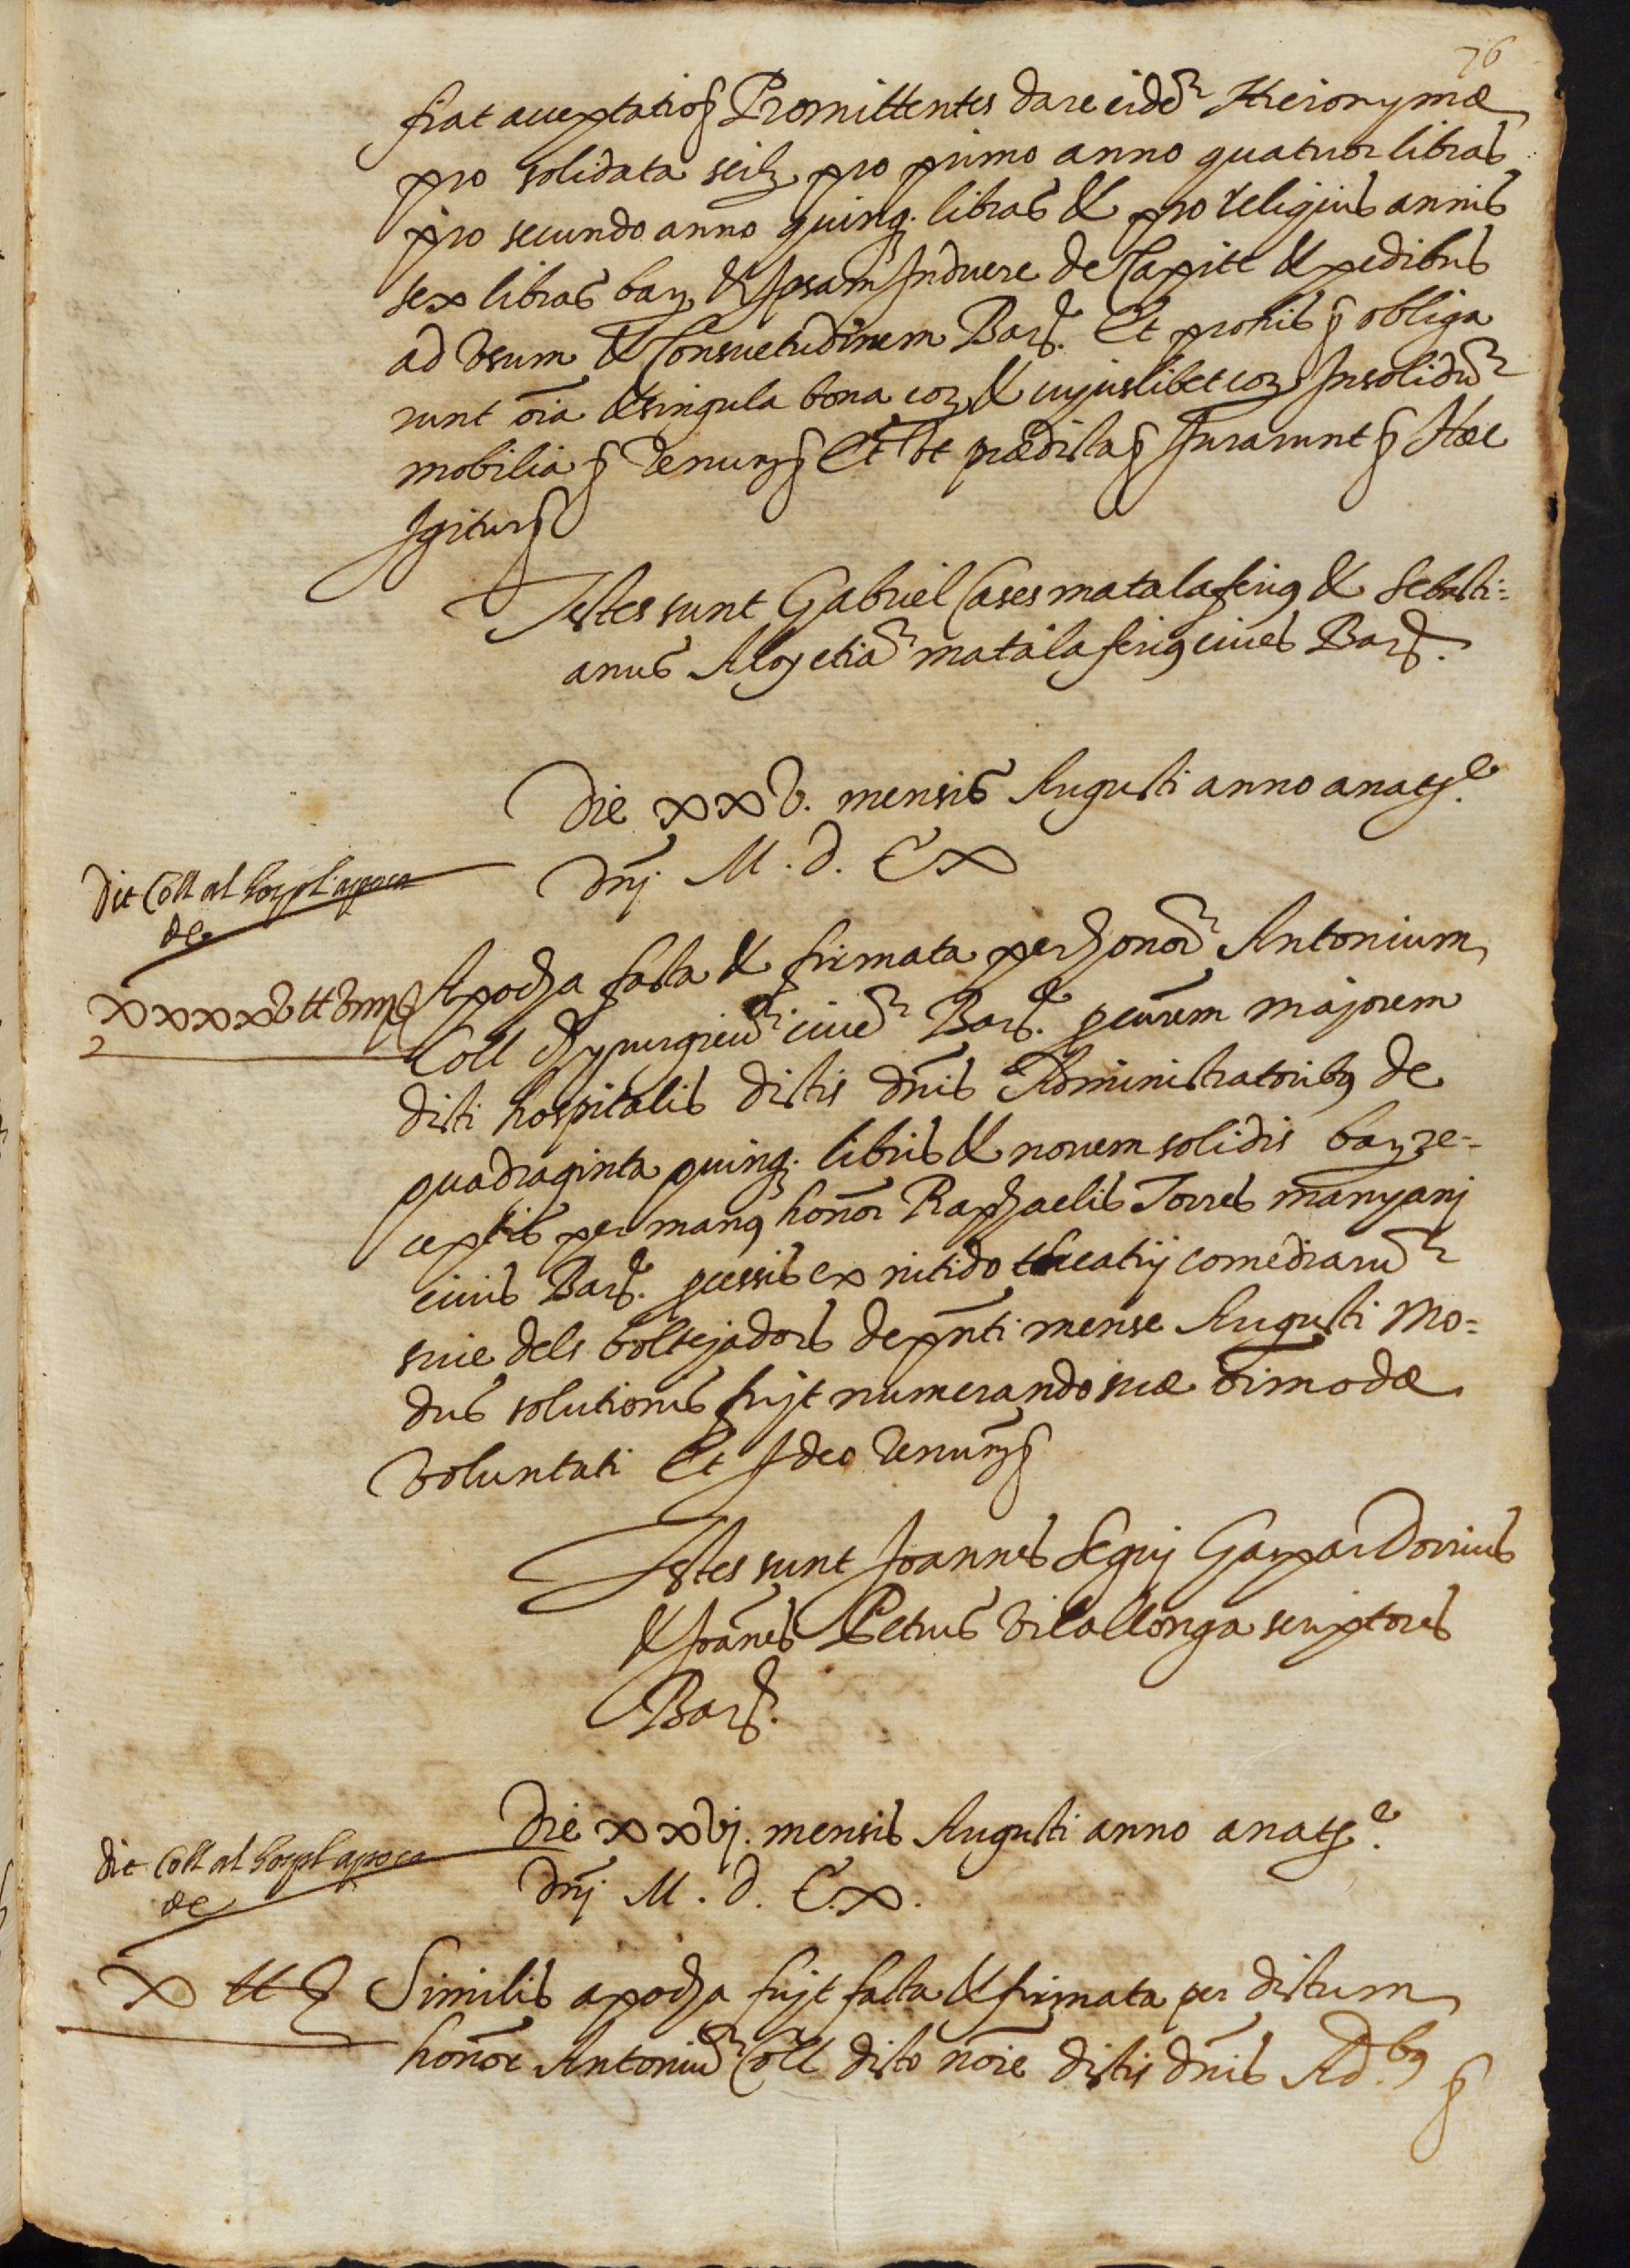 76
fiat acceptatio § Promittentes dare eidē Hieronymæ
pro solidata scilz pro primo anno quatuor libras
pro secundo anno quinqz libras & pro reliquis annis
sex libras barz & Ipsam Induere de Capite & pedibus
ad Vsum & Consuetudinem Barñe. Et pro his § obliga
runt oīa & singula bona eoz & cujuslibet eoz Insolidū
mobilia § Renunz § Et Vt prædicta § Jurarunt § Hæc
Igitur §
Testes sunt Gabriel Cases matalaferius & Sebasti=
anus Aloy etiā matalaferius ciues Barñe.
Die xxv. mensis Augusti anno a natte
Dnj M. D. C x
Dit Coll al hospl apoca
de
xxxxv ll viiij ß
Apocha facta & firmata per honorē Antonium
Coll chyrurgicū ciuē Barñe. procurem majorem
dicti hospitalis dictis dnīs Administratoribus de
quadraginta quinqz libris & novem solidis barz re=
ceptis per manus honor Raphaelis Torres manyani
ciuis Barñe. processis ex nitido theatrij comediarū
siue dels boltejadors de pñti mense Augusti Mo=
dus solutionis fuit numerando suæ oīmodæ
Voluntati Et Ideo Renunz §
Testes sunt Joannes Seguj Gaspar Dorrius
& Joānes Petrus Vilallonga scriptores
Barñe.
Die xxvj. mensis Augusti anno a natte.
Dnj M. D. C.x.
Dit Coll al hospl apoca
de
x ll ß
Similis apocha fuit facta & firmata per dictum
honor Antoniū Coll dicto noīe dictis dnīs Ad.bus §